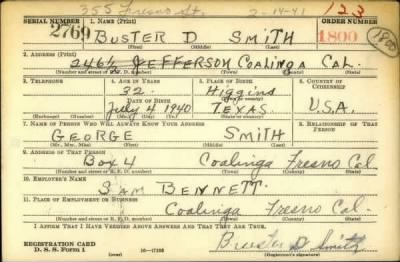 355 Fresno St. 2-14-41 123
SERIAL NUMBER 1. NAME (Print) ORDER NUMBER
2769 BUSTER D SMITH 1800 1800
(First) (Middle) (Last)
2. ADDRESS (Print)
246½ JEFFERSON COALINGA CAL.
(Number and street or R. F. D. number) (Town) (County) (State)
3. TELEPHONE 4. AGE IN YEARS 5. PLACE OF BIRTH 6. COUNTRY OF CITIZENSHIP
32. Higgins
DATE OF BIRTH (Town or county)
July 4 1940 TEXAS. U.S.A.
(Exchange) (Number) (Mo.) (Day) (Yr.) (State or country)
7. NAME OF PERSON WHO WILL ALWAYS KNOW YOUR ADDRESS 8. RELATIONSHIP OF THAT PERSON
GEORGE SMITH
(Mr., Mrs., Miss) (First) (Middle) (Last)
9. ADDRESS OF THAT PERSON
Box 4 Coalinga Fresno Cal
(Number and street or R. F. D. number) (Town) (County) (State)
10. EMPLOYER'S NAME
SAM BENNETT.
11. PLACE OF EMPLOYMENT OR BUSINESS
Coalinga Fresno Cal.
(Number and street or R. F. D. number) (Town) (County) (State)
I AFFIRM THAT I HAVE VERIFIED ABOVE ANSWERS AND THAT THEY ARE TRUE.
REGISTRATION CARD
D. S. S. Form 1 16—17105 Buster D Smith
(Registrant's signature)